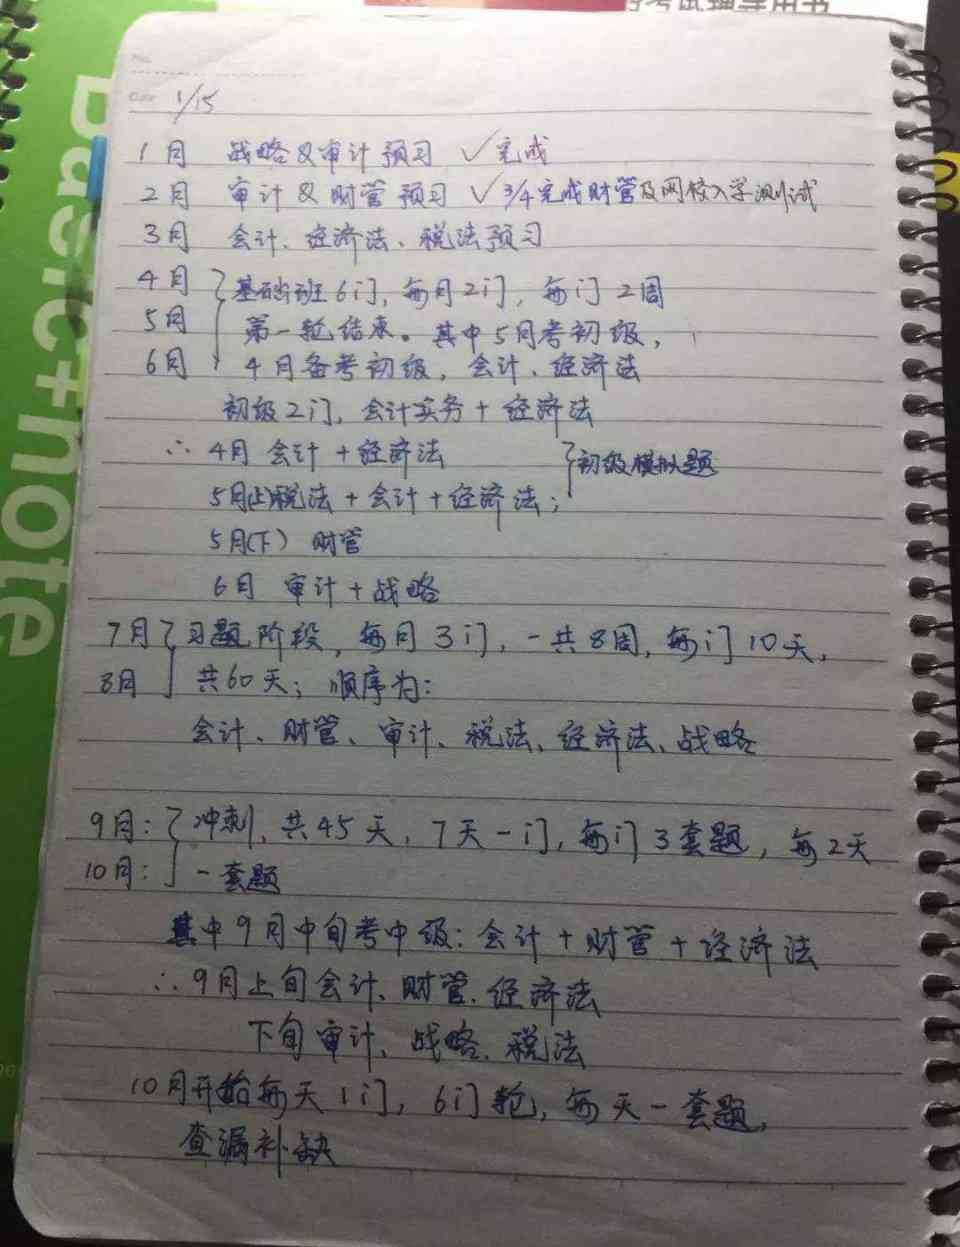 Basic+note
No.
Date 1/15
1月 战略&审计预习 ✓完成
2月 审计&财管预习 ✓3/4完成财管及网校入学测试
3月 会计、经济法、税法预习
4月 基础班6门，每月2门，每门2周
5月 第一轮结束。其中5月考初级，
6月 4月备考初级，会计、经济法
初级2门，会计实务+经济法
∴4月 会计+经济法 初级模拟题
5月(上)税法+会计+经济法；
5月(下) 财管
6月 审计+战略
7月 习题阶段，每月3门，一共8周，每门10天，
8月 共60天；顺序为：
会计、财管、审计、税法、经济法、战略
9月： 冲刺，共45天，7天一门，每门3套题，每2天
10月： 一套题
其中9月中旬考中级：会计+财管+经济法
∴9月上旬会计、财管、经济法
下旬审计、战略、税法
10月开始每天1门，6门轮，每天一套题，
查漏补缺